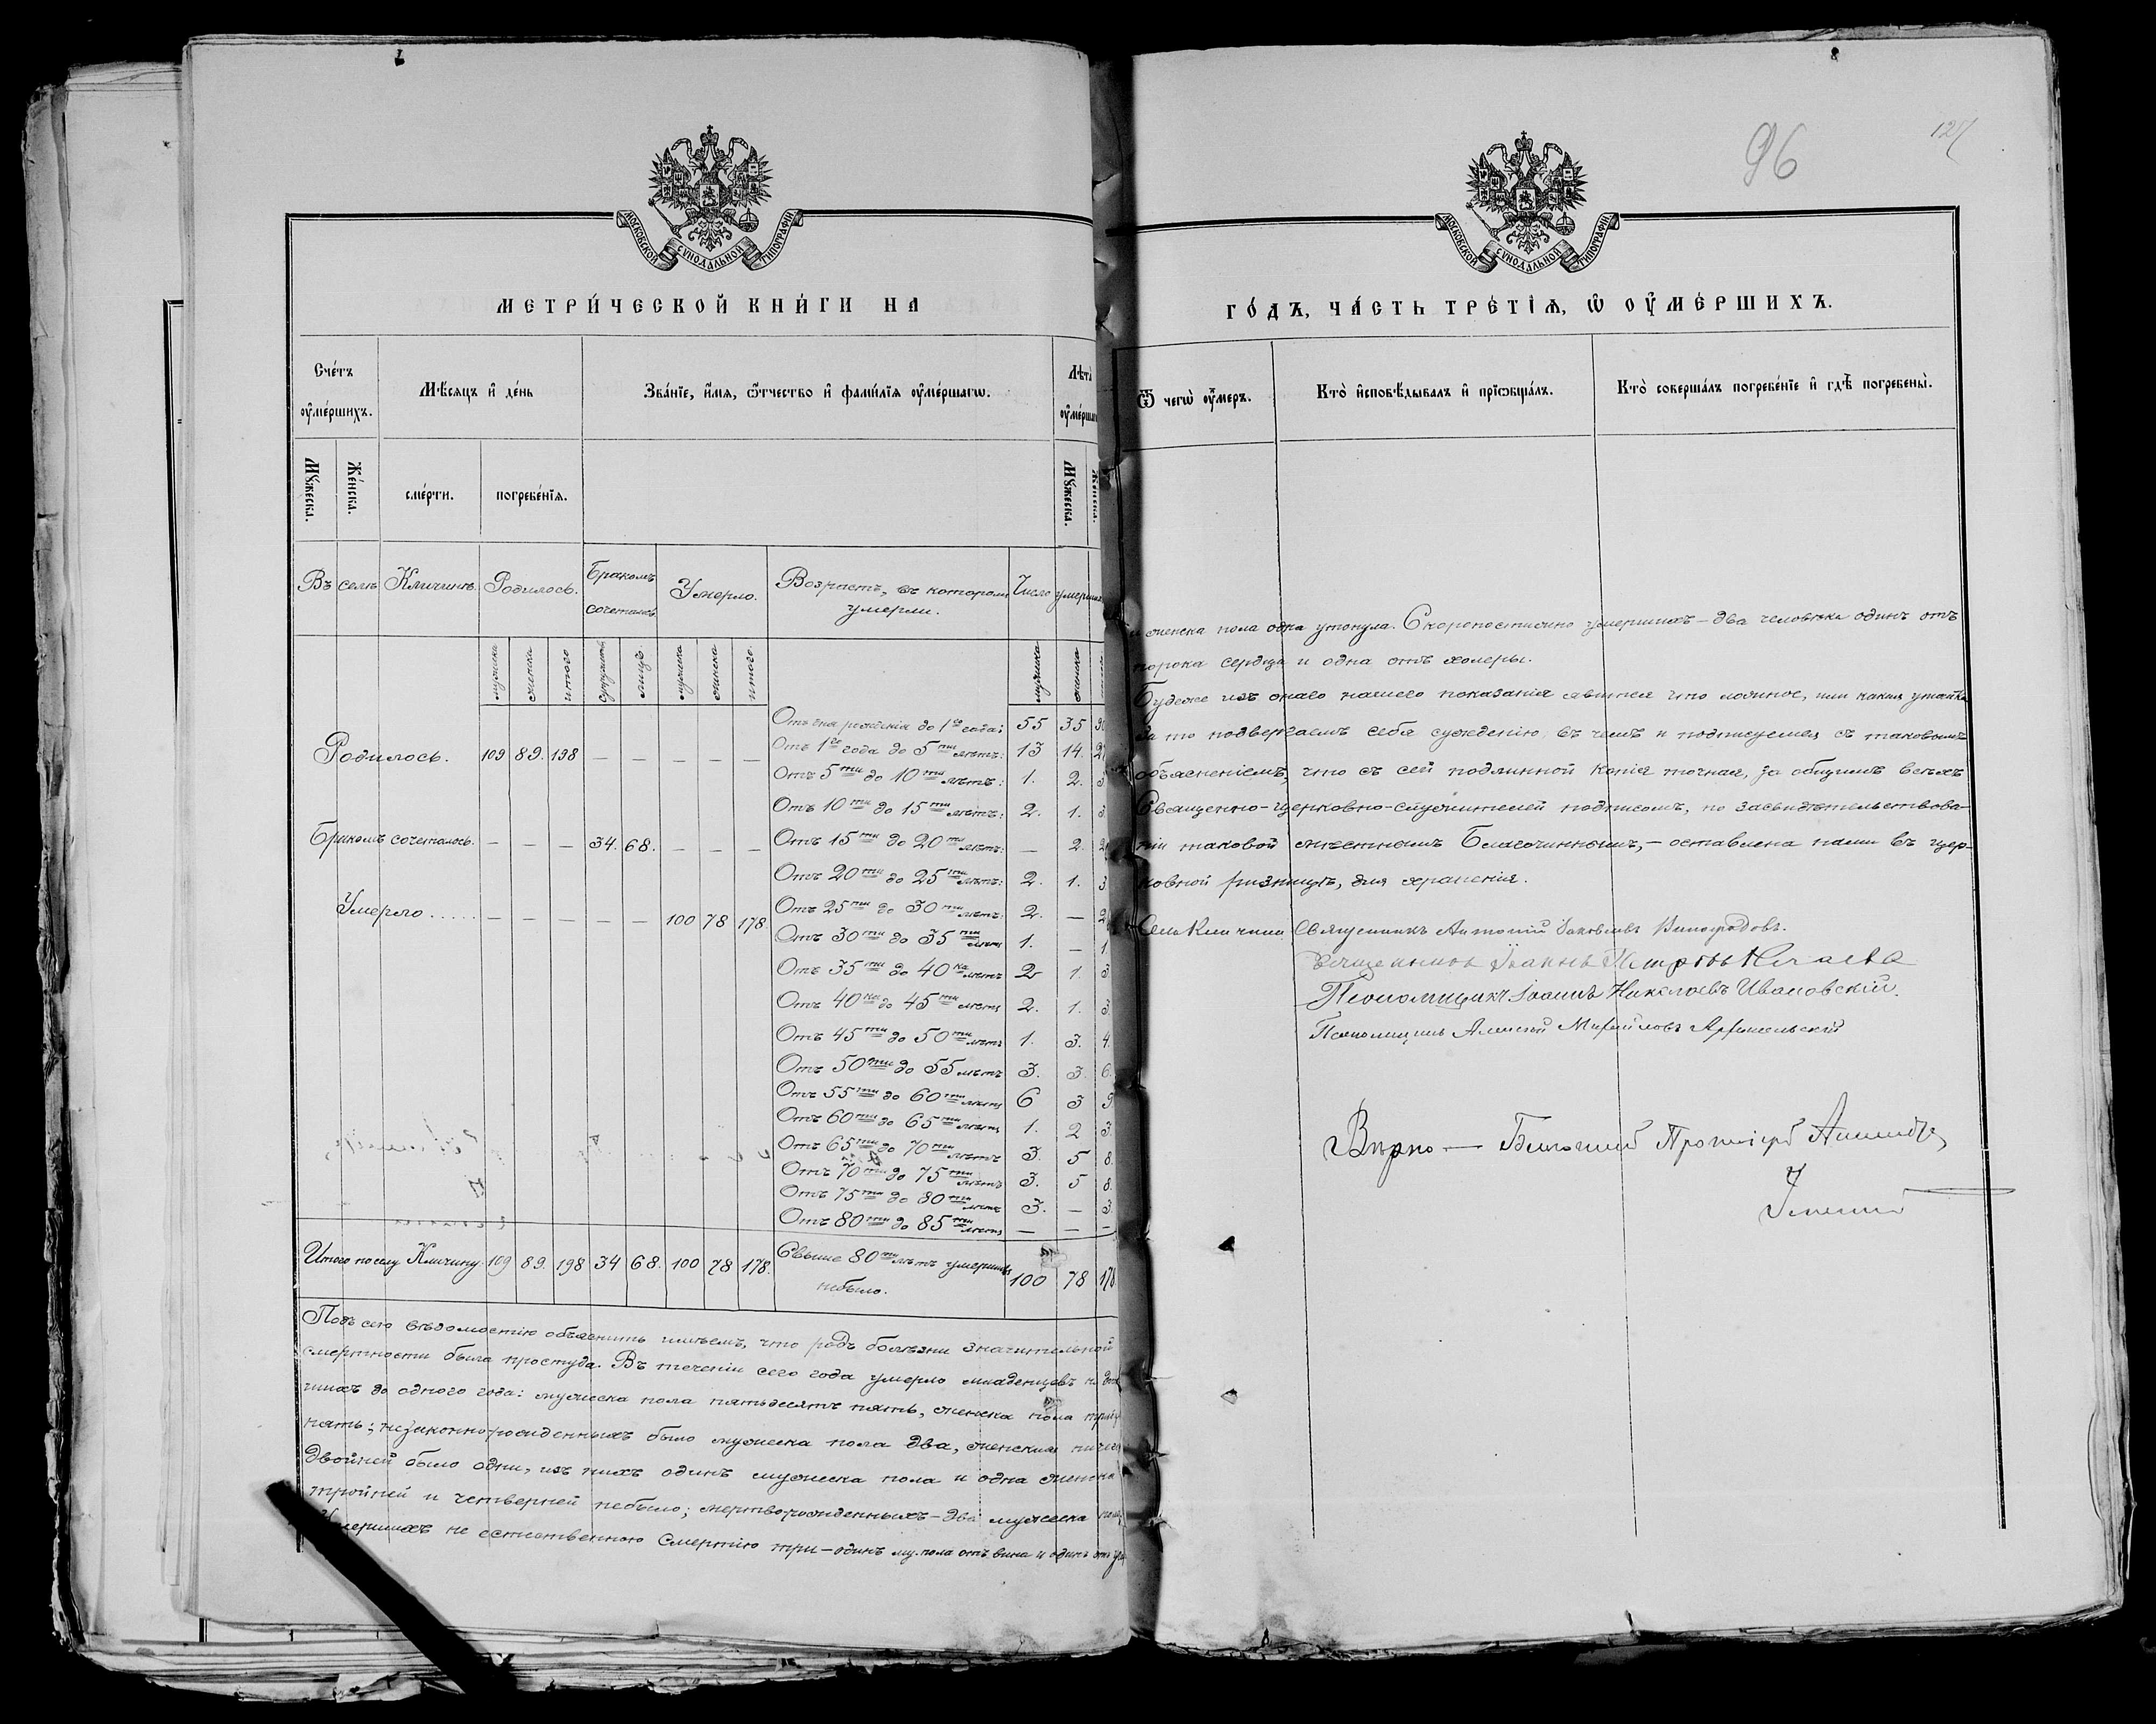 МОСКОВСКОЙ СѴНОДАЛЬНОЙ ТИПОГРАФІИ
МЕТРИ́ЧЕСКОЙ КНИ́ГИ НА
Сче́тъ ᲂу҆ме́ршихъ.
Мѣ́сяцъ и҆ де́нь
Зва́нїе, и҆́мя, ѻ҆́тчество и҆ фами́лїя ᲂу҆ме́ршагѡ.
Лѣта̀ ᲂу҆ме́рша
Мꙋ́жеска. Же́нска. сме́рти. погребе́нїя. Мꙋ́жеска. Же́нска.
Въ селѣ Кличинѣ. Родилось. Бракомъ сочеталось Умерло. Возрастъ, въ котором умерли. Число умерших
мужеска женска итого супружествъ лицъ. мужеска женска итого. мужеска женска
Отъ дня рожденія до 1го года: 55 35 90
Родилось. 109 89. 198 — — — — — Отъ 1го года до 5ти лѣтъ: 13 14. 27
Отъ 5ти до 10ти лѣтъ: 1. 2. 3
Отъ 10ти до 15ти лѣтъ: 2. 1. 3.
Бракомъ сочеталось. — — — 34. 68. — — — Отъ 15ти до 20ти лѣтъ: — 2. 2
Отъ 20ти до 25ти лѣтъ: 2. 1. 3
Умерло..... — — — — — 100 78 178. Отъ 25ти до 30ти лѣтъ: 2. — 2
Отъ 30ти до 35ти лѣтъ 1. — 1
Отъ 35ти до 40ка лѣтъ 2 1. 3.
Отъ 40ка до 45ти лѣтъ 2. 1. 3.
Отъ 45ти до 50ти лѣтъ 1. 3. 4.
Отъ 50ти до 55 лѣтъ 3. 3. 6.
Отъ 55ти до 60ти лѣтъ 6 3 9
Отъ 60ти до 65ти лѣтъ 1. 2 3.
Отъ 65ти до 70ти лѣтъ 3. 5 8.
Отъ 70ти до 75ти лѣтъ 3. 5 8.
Отъ 75ти до 80ти лѣтъ 3. — 3.
Отъ 80ти до 85ти лѣтъ — — —
Итого по селу Кличину. 109 89. 198 34 68. 100 78 178. Свыше 80ти лѣтъ умершихъ небыло. 100 78 178
Подъ сею вѣдомостію объяснить имѣемъ, что родъ болѣзни значительной
смертности была простуда. Въ теченіи сего года умерло младенцовъ не дож
шихъ до одного года: мужеска пола пятьдесятъ пять, женска пола тридц
пять; незаконнорожденныхъ было мужеска пола два, женскихъ
двойней было одни, изъ нихъ одинъ мужеска пола и одна женска
тройней и четверней небыло; мертворожденныхъ — два мужеска пола
Умершихъ не естественною смертію три — одинъ му. пола отъ вина и одинъ отъ
96
127
МОСКОВСКОЙ СѴНОДАЛЬНОЙ ТИПОГРАФІИ
ГО́ДЪ, ЧА́СТЬ ТРЕ́ТЇѦ, Ѡ҆ ОУ҆МЕ́РШИХЪ.
Ѿ чегѡ̀ ᲂу҆́мер.
Кто̀ и҆сповѣ́дывалъ и҆ прїѡбща́лъ.
Кто̀ соверша́лъ погребе́нїе и҆ гдѣ̀ погребены̀.
и женска пола одна утонула. Скоропостижно умершихъ — два человѣка одинъ отъ
порока сердца и одна отъ холеры.
Будеже изъ онаго нашего показанія явится что ложное, или какая утайка
за то подвергаемъ себя сужденію, въ чемъ и подписуемся съ таковымъ
объясненіемъ, что съ сей подлинной копія точная, за общимъ всѣхъ
Священно-церковно-служителей подписомъ, по засвидѣтельствова-
ніи таковой мѣстнымъ Благочиннымъ, — оставлена нами въ цер-
ковной ризницѣ, для храненія.
Села Кличина Священникъ Антоній Іаковлевъ Виноградовъ.
Священникъ Іоаннъ Петровъ Нечаевъ
Псаломщикъ Іоаннъ Николаевъ Ивановскій.
Псаломщикъ Алексій Михайловъ Архангельскій
Вѣрно — Протоіерей